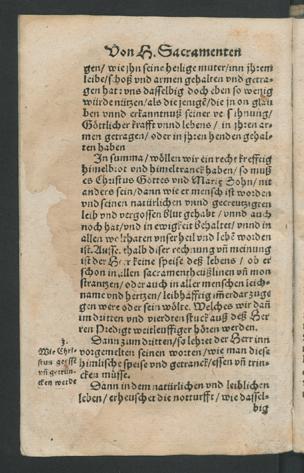 Von H. Sacramenten
gen/ wie jhn seine heilige muter/inn jhrem
leibe/ schoß vnd armen gehalten vnd getra-
gen hat: vns dasselbig doch eben so wenig
würde nützen/ als die jenigē/ die jn on glau
ben vnnd erkanntnuß seiner versühnung/
Göttlicher krafft vnnd lebens / in jhren ar-
men getragen/ oder in jhren henden gehal-
ten haben
In summa/ wöllen wir ein recht krefftig
himelbrot vnd himeltranck haben/ so muß
es Christus Gottes vnd Marię Sohn/ nit
anders sein/ dann wie er mensch ist worden
vnd seinen natürlichen vnnd gecreutzigten
leib vnd vergossen blut gehabt / vnnd auch
noch hat/ vnd in ewigkeit behaltet/ vnnd in
allen wolthaten vnser heil vnd lebē worden
ist. Ausserthalb diser rechnung vñ meinung
ist der Herr keine speise deß lebens / ob er
schon in allen sacramentheüßlinen vñ mon
strantzen/ oder auch in aller menschen leich-
name vnd hertzen/ leibhafftig im̄erdar zuge
gen were oder sein wölte. Welches wir dañ
im dritten vnd vierdten stuck auß deß Her
ren Predigt weitleuffiger hören werden.
3.
Wie Chri-
stus gessē
vñ getrun-
cken werde
Dann zum dritten/ so lehret der Herr inn
vorgemelten seinen worten / wie man diese
himlische speise vnd getranck/ essen vñ trin-
cken müsse.
Dann in dem natürlichen vnd leiblichen
leben/ erheuschet die notturfft / wie dassel-
big